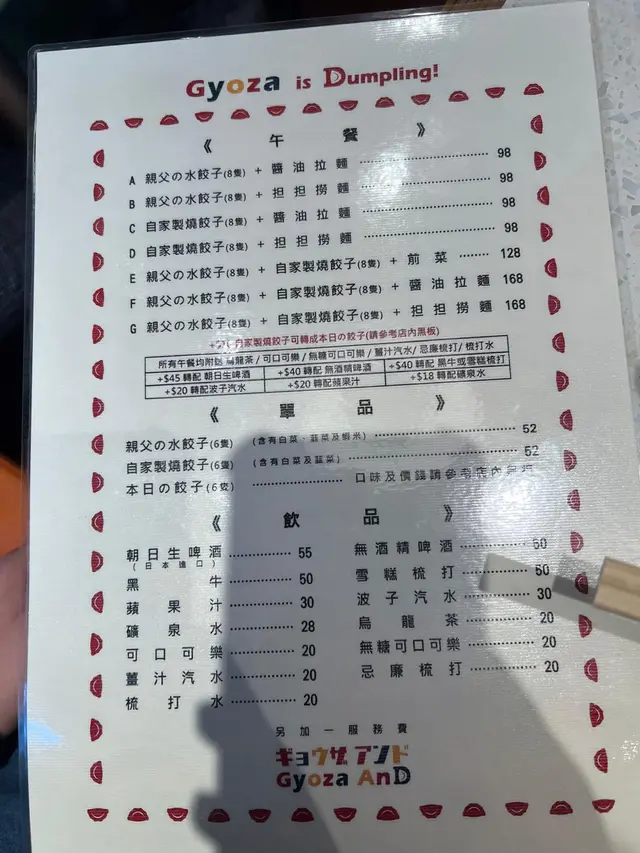 Gyoza is Dumpling!
《 午 餐 》
A 親父の水餃子(8隻) + 醬油拉麵 98
B 親父の水餃子(8隻) + 担担撈麵 98
C 自家製燒餃子(8隻) + 醬油拉麵 98
D 自家製燒餃子(8隻) + 担担撈麵 98
E 親父の水餃子(8隻) + 自家製燒餃子(8隻) + 前菜 128
F 親父の水餃子(8隻) + 自家製燒餃子(8隻) + 醬油拉麵 168
G 親父の水餃子(8隻) + 自家製燒餃子(8隻) + 担担撈麵 168
自家製燒餃子可轉成本日の餃子(請參考店內黑板)
所有午餐均附送 烏龍茶 / 可口可樂 / 無糖可口可樂 / 薑汁汽水/ 忌廉梳打/ 梳打水
+$45 轉配 朝日生啤酒 +$40 轉配 無酒精啤酒 +$40 轉配 黑牛或雪糕梳打
+$20 轉配波子汽水 +$20 轉配蘋果汁 +$18 轉配礦泉水
《 單 品 》
親父の水餃子(6隻) (含有白菜、韮菜及蝦米) 52
自家製燒餃子(6隻) (含有白菜及韮菜) 52
本日の餃子(6隻) 口味及價錢請參考店內黑板
《 飲 品 》
朝日生啤酒 55 無酒精啤酒 50
(日本進口)
黑牛 50 雪糕梳打 50
蘋果汁 30 波子汽水 30
礦泉水 28 烏龍茶 20
可口可樂 20 無糖可口可樂 20
薑汁汽水 20 忌廉梳打 20
梳打水 20
另加一服務費
ギョウザ アンド
Gyoza AnD